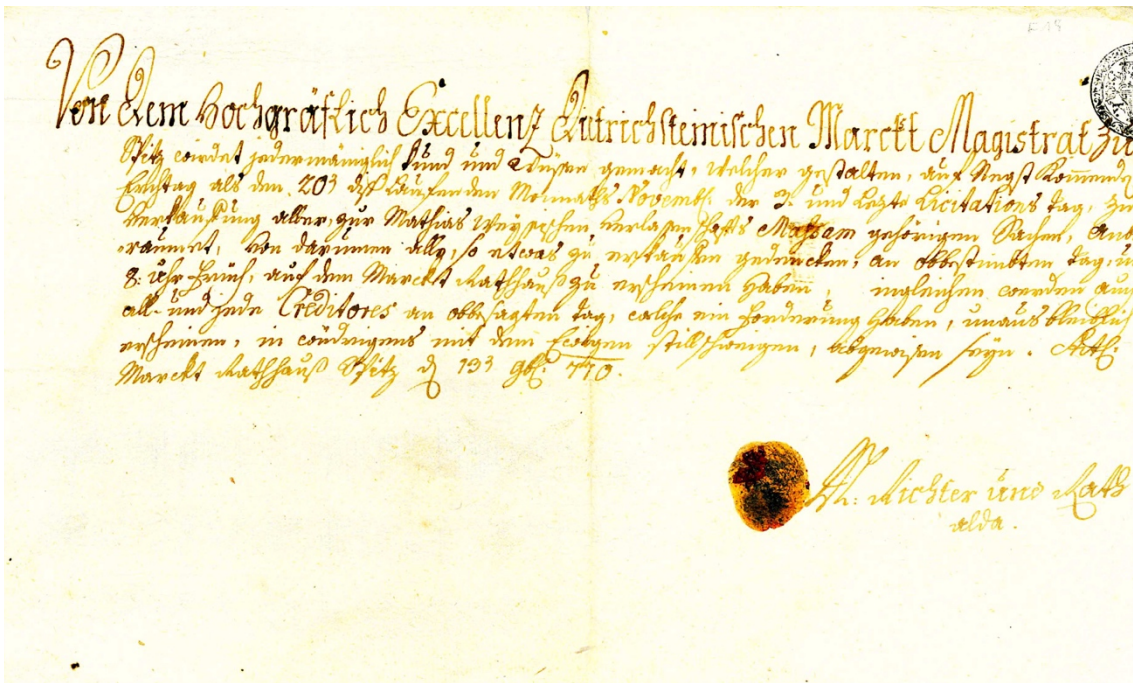 Von dem Hochgräflich Excellenz Dietrichsteinischen Marckt Magistrat zu
Spitz wirdet jedermäniglich kund und wüssen gemacht, welcher gestalten, auf Negst Kommende
Erchtag als den 20ᵗ diß Lauffenden Monnaths Novemb: der 3ᵗ und Lezte Licitations tag, zu
Verkauffung aller, zur Mathias verlassenschaffts Massam gehörigen Sachen, anb
raumet, von darumen alle, so etwas zu erkauffen gedencken, an obbestimbten tag, u
8: Uhr Frueh, auf dem Marckt Rathhauß zu erscheinen haben, ingleichen werden auch
all- und jede Creditores an obbesagten tag, welche ein Forderung haben, unausbleiblich
erscheinen, in widrigens mit dem Ewigen stillschweigen, abgewisen seyn. Actl:
Marckt Rathhauß Spitz d 13ᵗ 9b: 770.
N: Richter und Rath
alda.